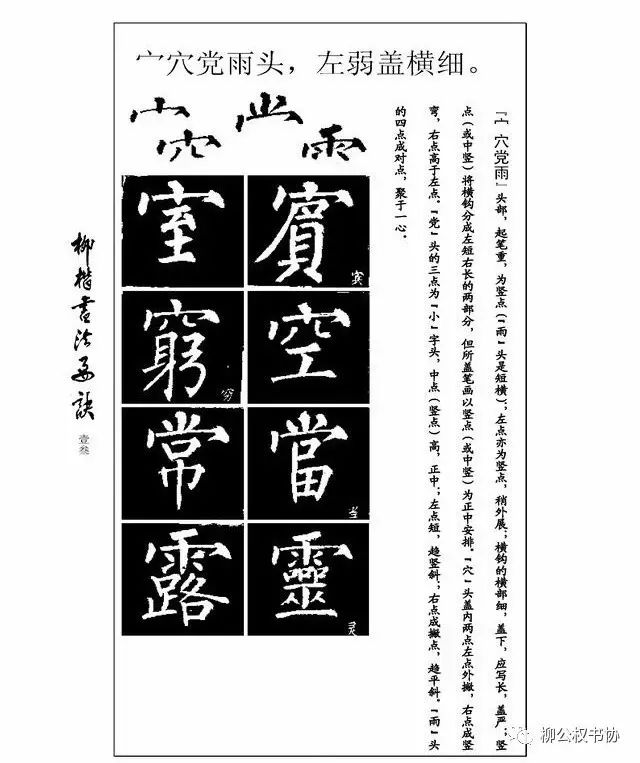 宀穴党雨头，左弱盖横细。
『宀 穴党雨』头部，起笔重，为竖点（『雨』头是短横）；左点亦为竖点，稍外展；横钩的横部细，盖下，应写长，盖严；竖
点（或中竖）将横钩分成左短右长的两部分，但所盖笔画以竖点（或中竖）为正中安排。『穴』头盖内两点左点外撇，右点成竖
弯，右点高于左点。『党』头的三点为『小』字头，中点（竖点）高，正中；左点短，趋竖斜；右点成撇点，趋平斜。『雨』头
的四点成对点，聚于一心。
宀
穴
雨
賓
宾
室
空
窮
穷
當
当
常
靈
灵
露
柳楷书法要诀
壹叁
柳公权书协